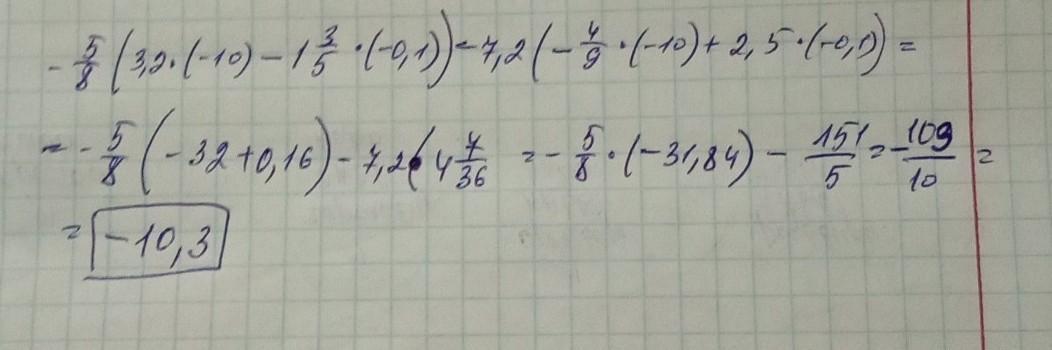 - 5/8 (3,2·(-10) - 1 3/5 ·(-0,1)) - 7,2 (- 4/9 ·(-10) + 2,5·(-0,1)) =
= - 5/8 (-32 + 0,16) - 7,2 · 4 7/36 = - 5/8 · (-31,84) - 151/5 = - 109/10 =
= -10,3